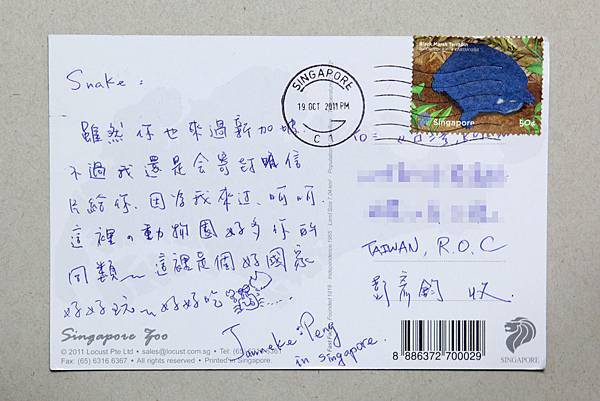 Snake:
雖然你也來過新加坡
不過我還是会寄張明信
片給你,因為我來过,呵呵.
這裡の動物園好多你的
同類~這裡是個好國家
好好玩~好好吃......
Janneke Peng
in singapore.
Singapore Zoo
© 2011 Locust Pte Ltd • sales@locust.com.sg • Tel: (65) 6316 6361
Fax: (65) 6316 6367 • All rights reserved • Printed in Singapore
SINGAPORE
19 OCT 2011 PM
C 1
Black Marsh Terrapin
50¢
Singapore
TO:
TAIWAN, R.O.C
收.
8 886372 700029
SINGAPORE